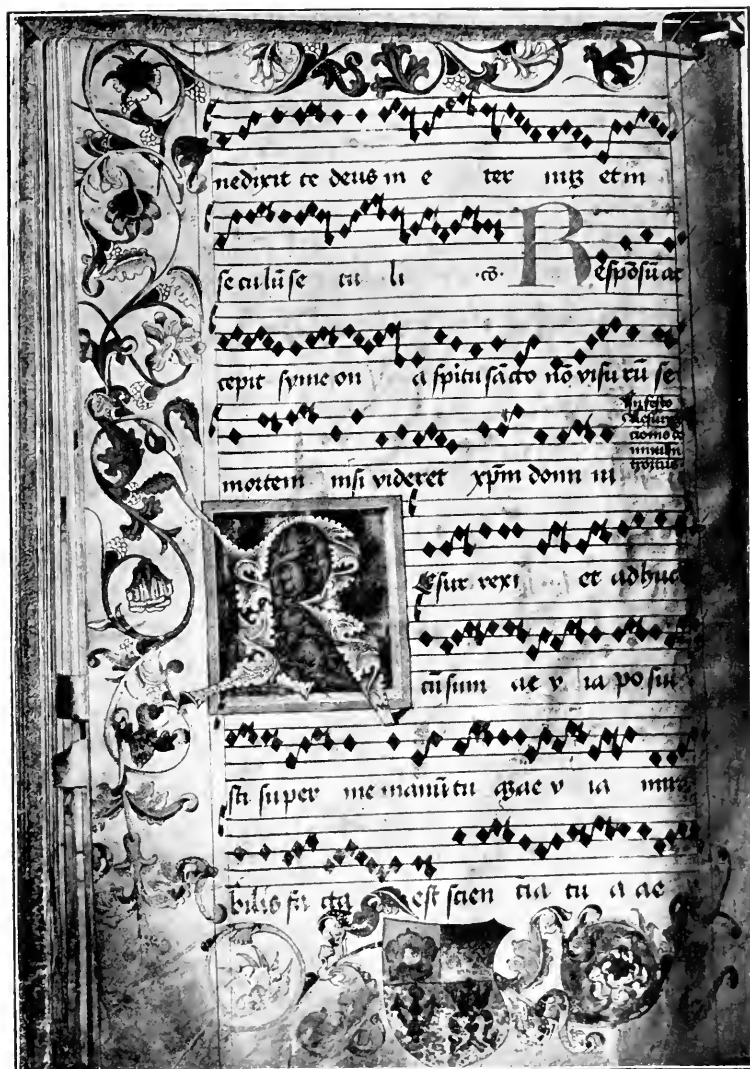 nedixit te deus in e ter nuʒ et in
se culū se cu li · co · Respōsū ac
cepit symeon a spiritu sācto nō visu rū se
mortem nisi videret xp̄m domi ni
In festo
Resur vexi et adhuc
cū sum ae v ia po sui
sti super me manū tu ā ae v ia mira
bilis fa cta est scien tia tu a ae